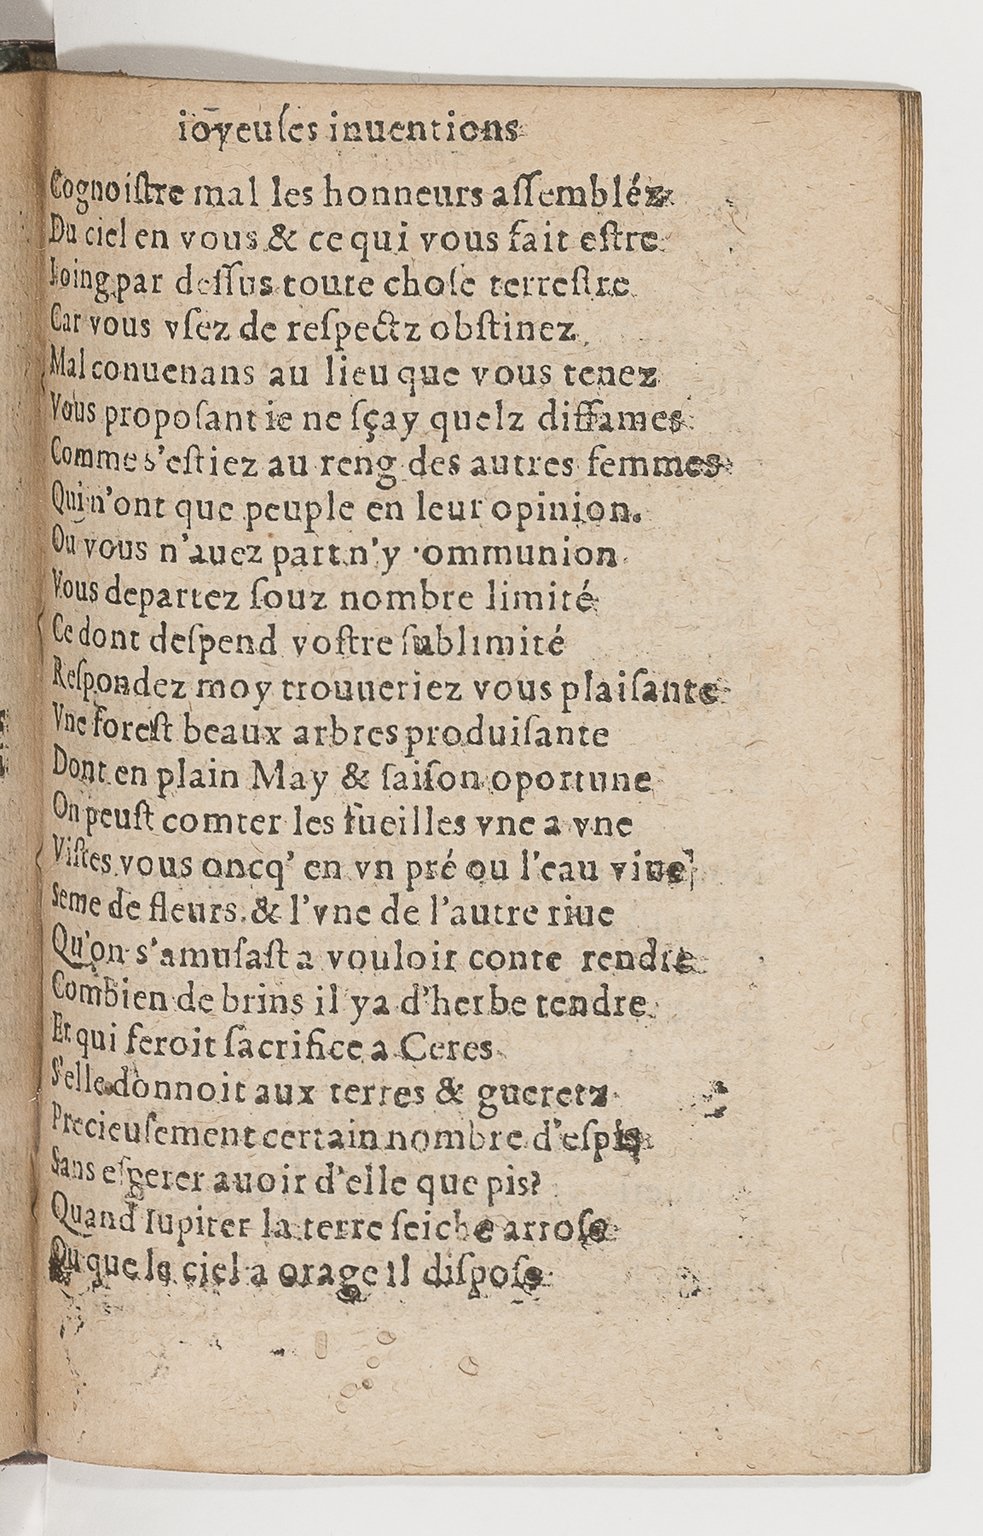 ioyeuſes inuentions
Cognoiſtre mal les honneurs aſſembléz
Du ciel en vous & ce qui vous fait eſtre
Loing par deſſus toute choſe terreſtre
Car vous vſez de reſpectz obſtinez
Mal conuenans au lieu que vous tenez
Vous propoſant ie ne ſçay quelz diffames
Comme s'eſtiez au reng des autres femmes
Qui n'ont que peuple en leur opinion.
Ou vous n'auez part n'y ommunion
Vous departez ſouz nombre limité
Ce dont deſpend voſtre ſublimité
Reſpondez moy trouueriez vous plaiſante
Vne foreſt beaux arbres produiſante
Dont en plain May & ſaiſon oportune
On peuſt comter les fueilles vne a vne
Viſtes vous oncq' en vn pré ou l'eau viue
Seme de fleurs & l'vne de l'autre riue
Qu'on s'amuſaſt a vouloir conte rendre
Combien de brins il ya d'herbe tendre
Et qui feroit ſacrifice a Ceres
S'elle donnoit aux terres & gueretz
Precieuſement certain nombre d'eſpis
Sans eſperer auoir d'elle que pis?
Quand Iupiter la terre ſeiche arroſe
Ou que le ciel a orage il diſpoſe